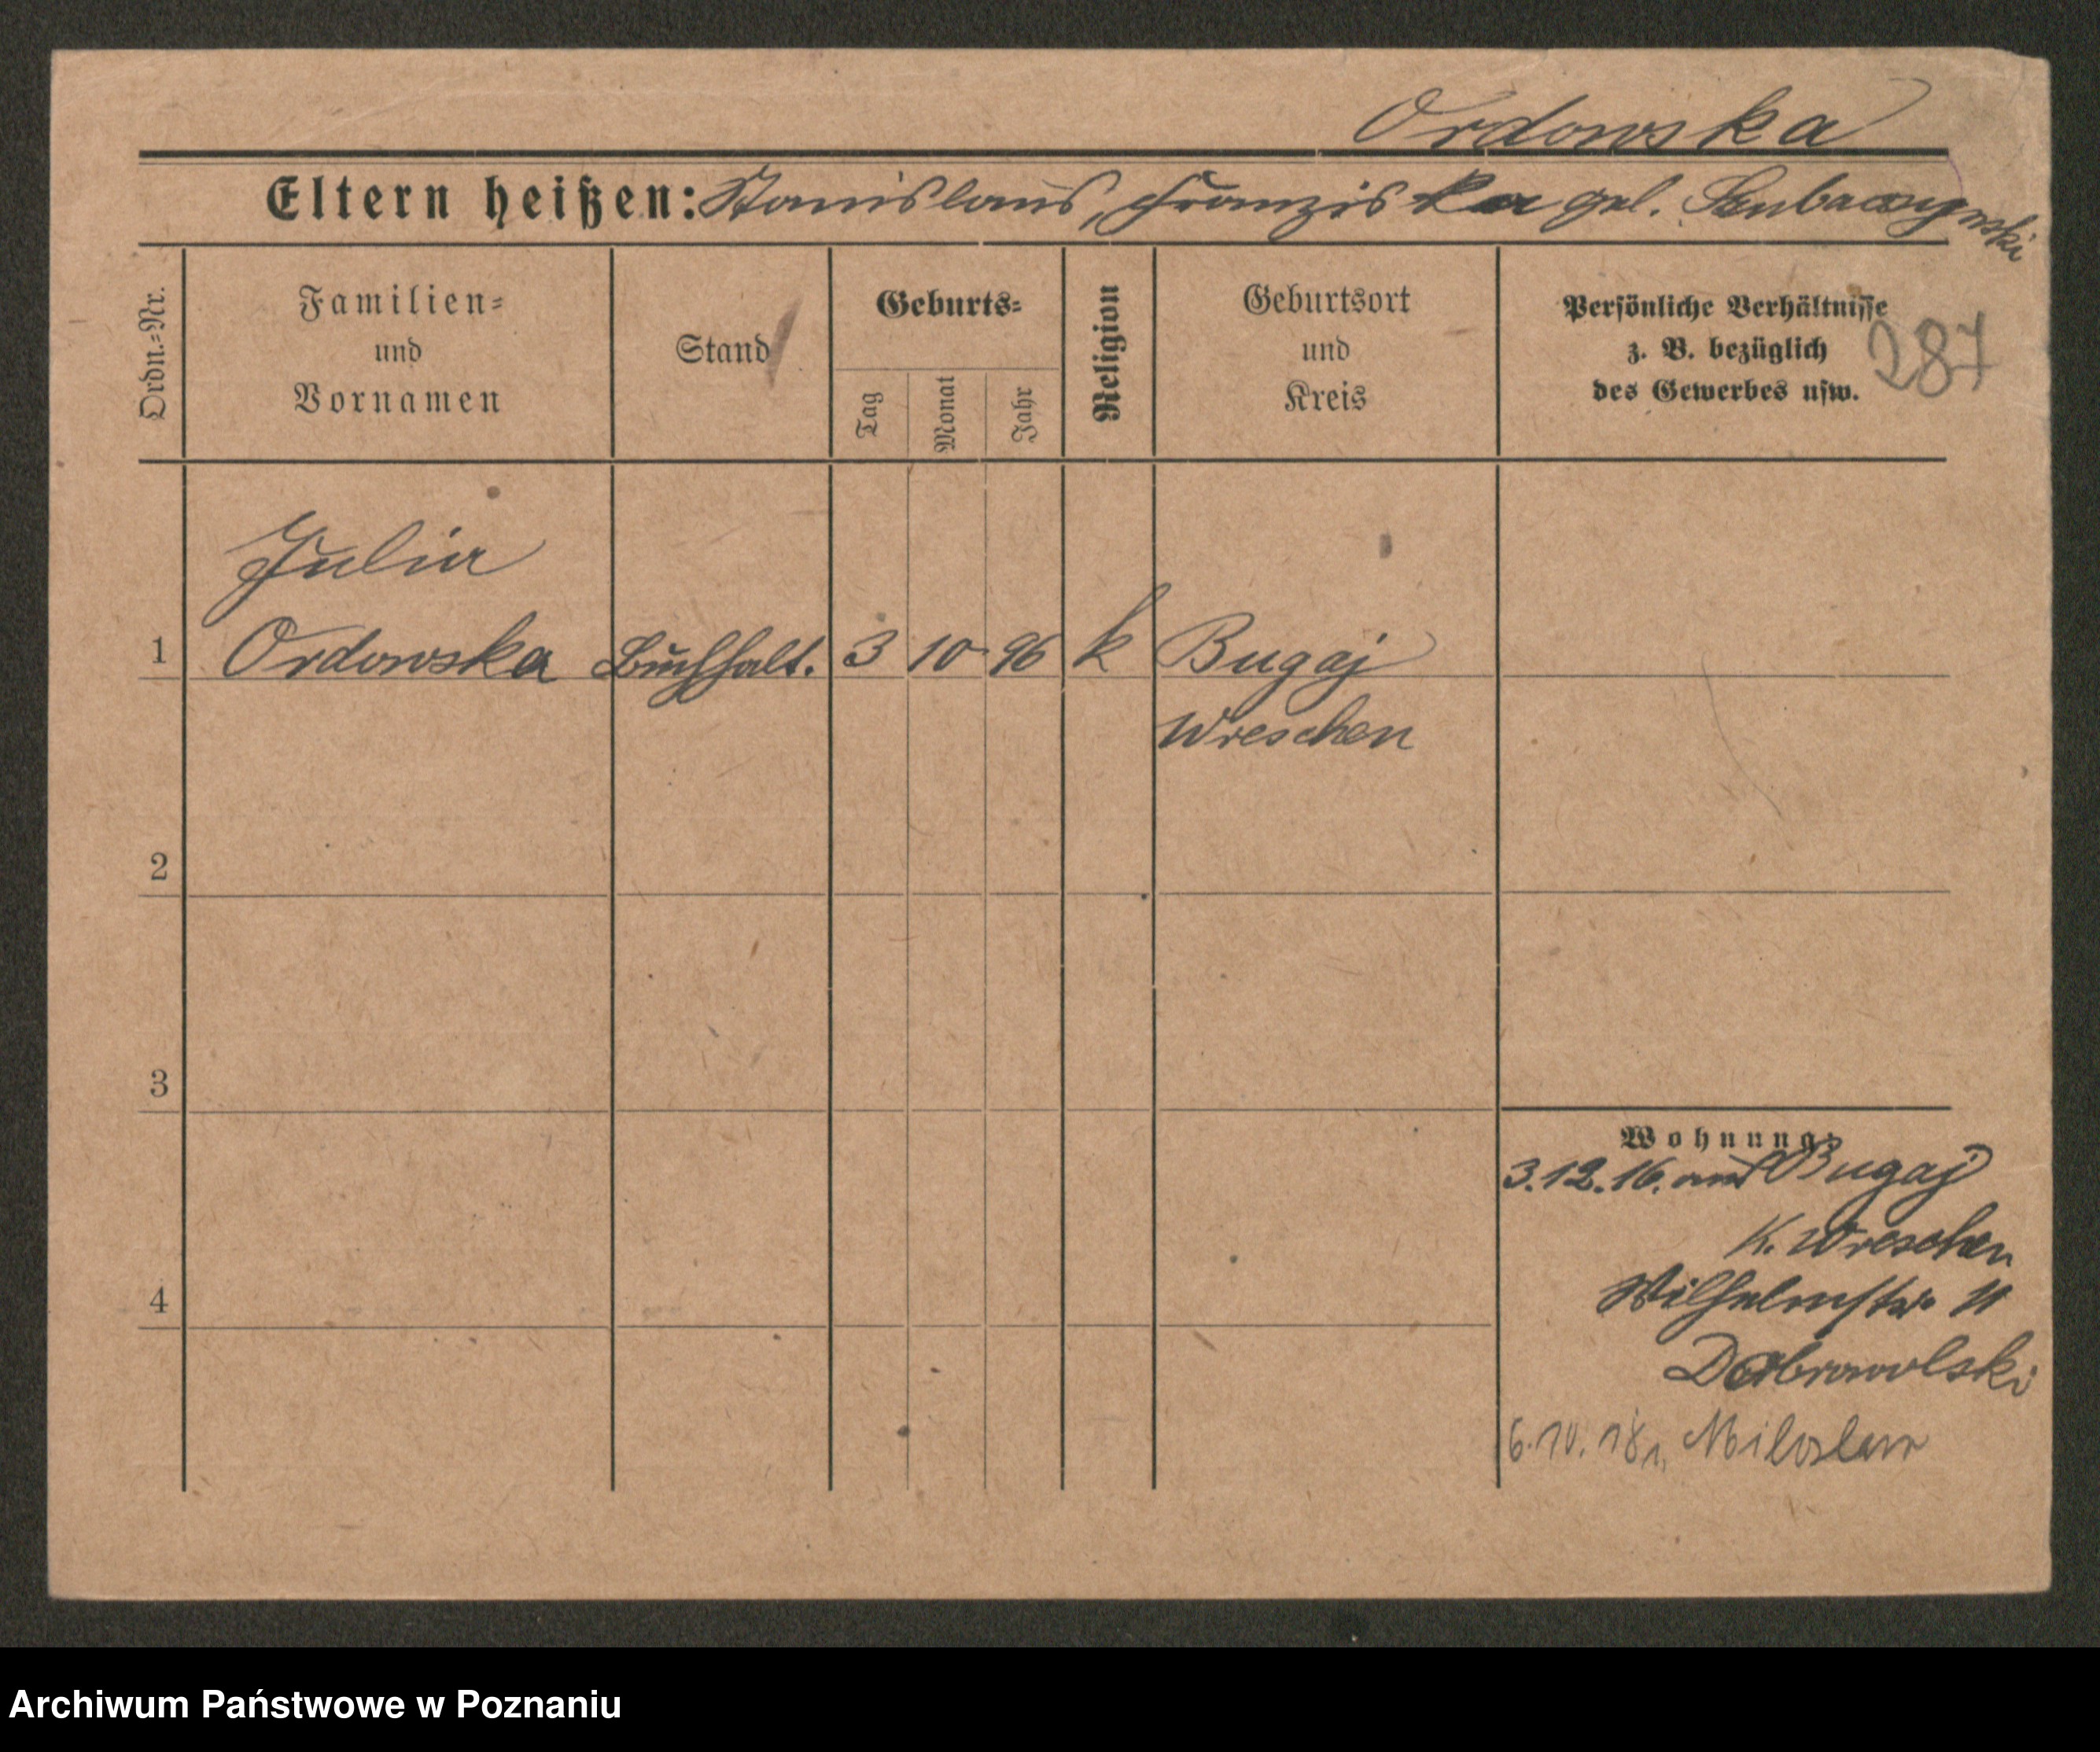 Ordowska
Eltern heißen: Stanislaus, Franziska geb.
Ordn.-Nr.
Familien-
und
Vornamen
Stand
Geburts-
Tag
Monat
Jahr
Religion
Geburtsort
und
Kreis
Persönliche Verhältnisse
z. B. bezüglich
des Gewerbes usw.
287
Julia
1 Ordowska Buchhalt. 3 10 96 k Bugaj
Wreschen
2
3
Wohnung:
3.12.16. aus Bugaj
K. Wreschen
4 Wilhelmstr. 11
Dobrowolski
6.10.18, Miloslaw
Archiwum Państwowe w Poznaniu